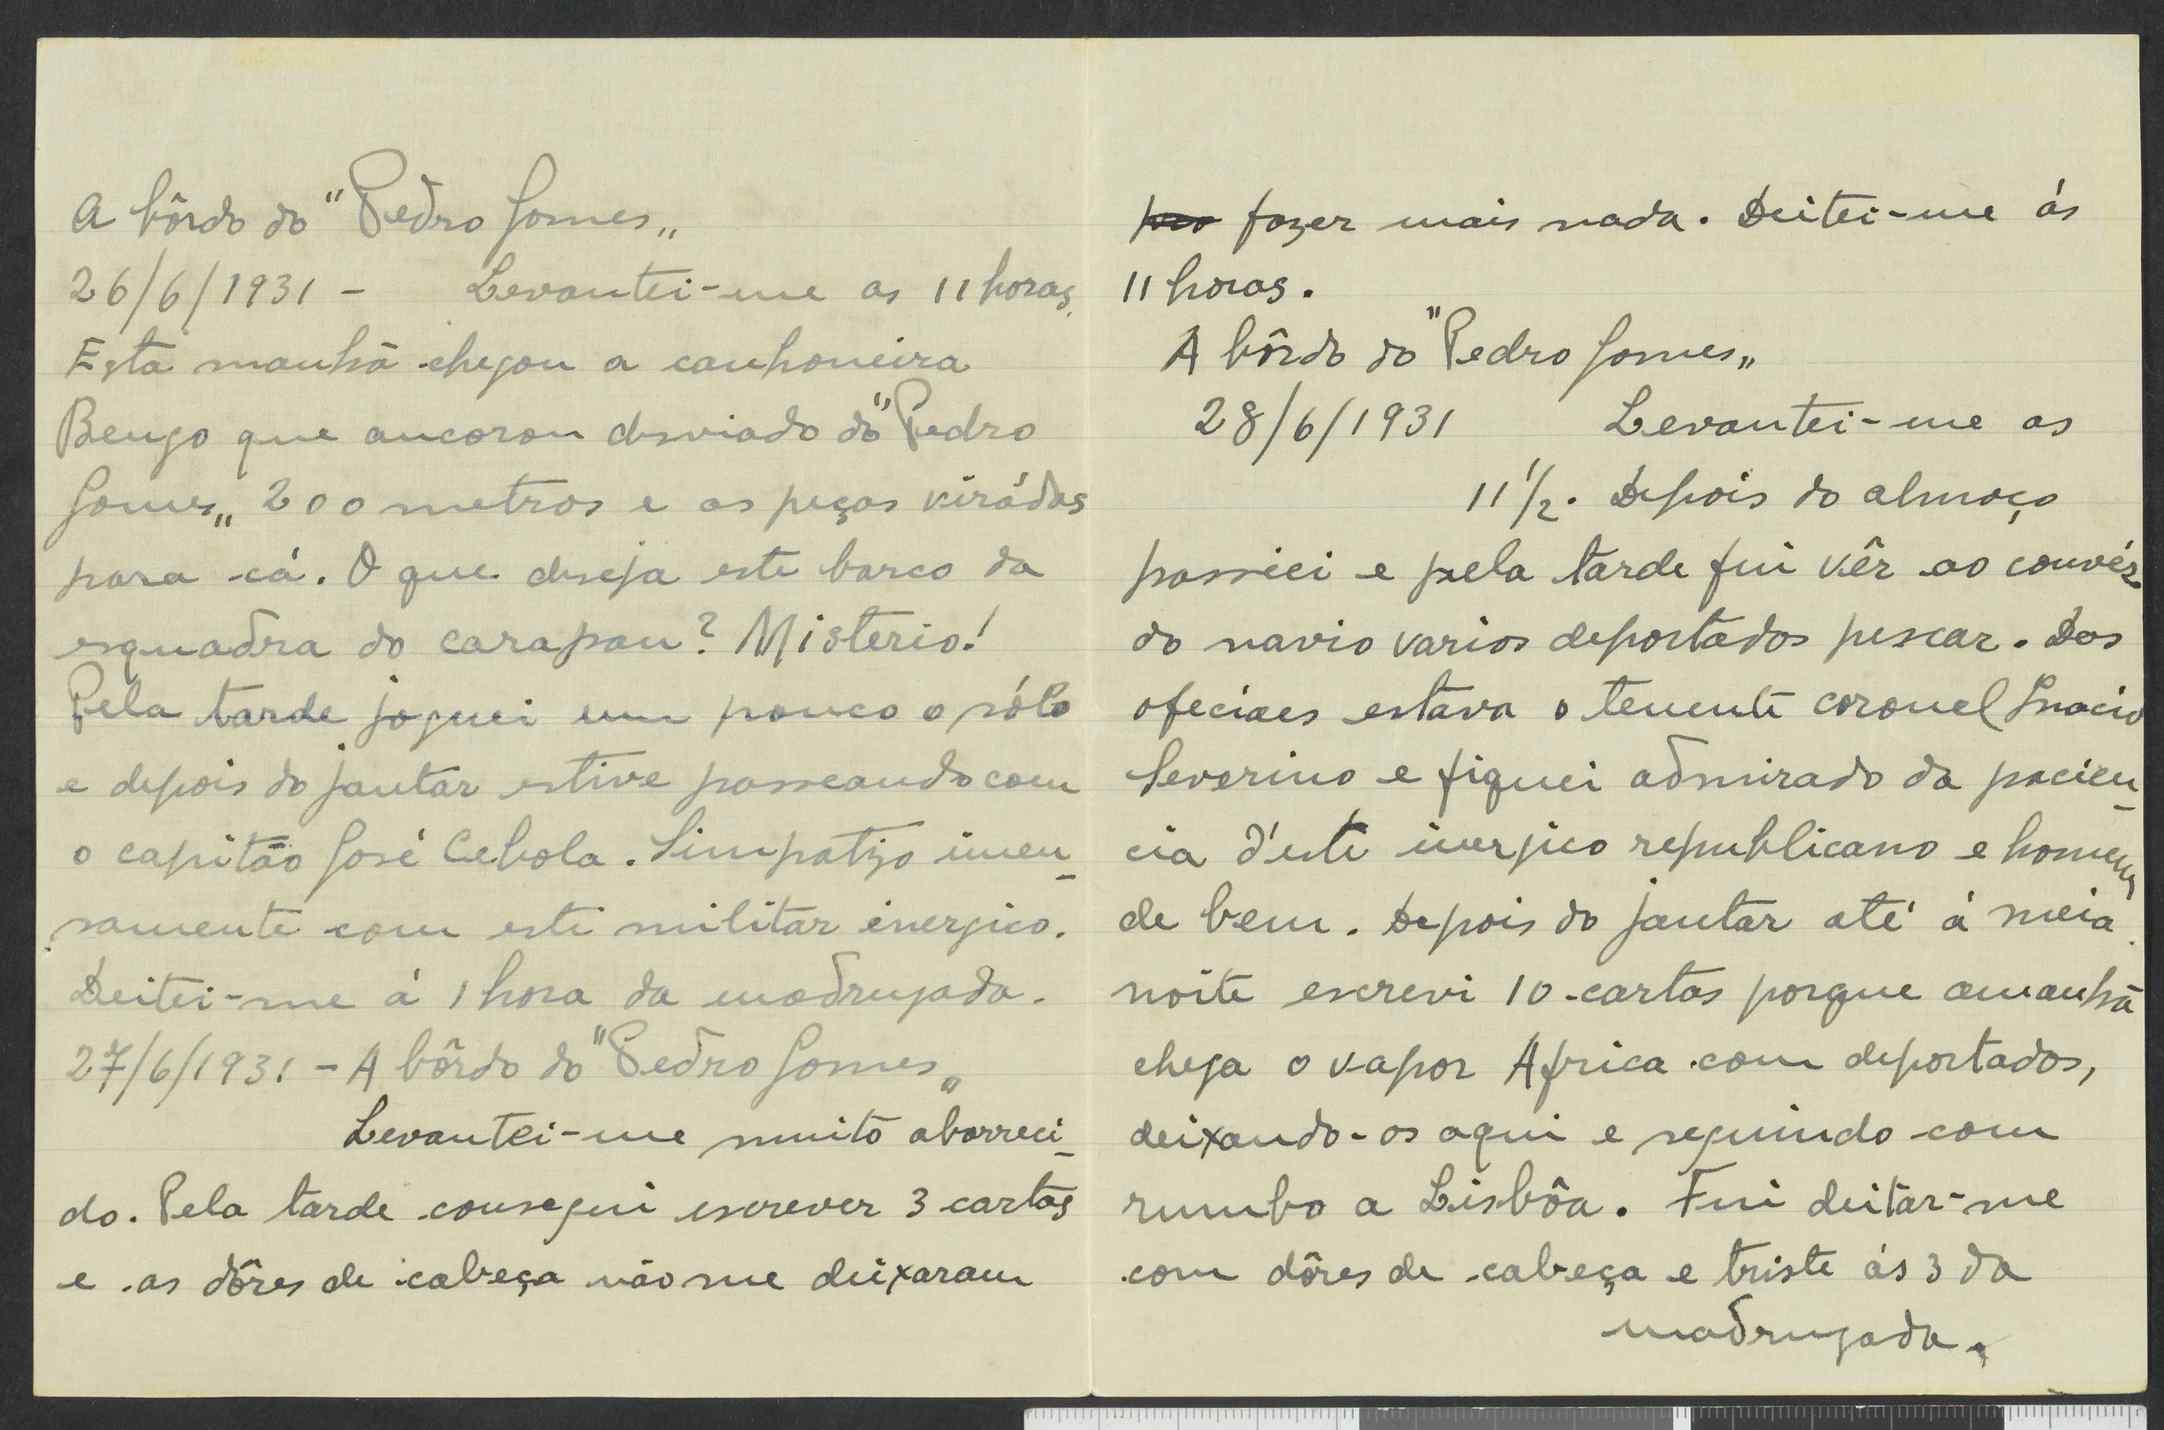 A bôrdo do "Pedro Gomes„
26/6/1931 - Levantei-me as 11 horas.
Esta manhã chegou a canhoneira
Bengo que ancorou desviado do "Pedro
Gomes„ 200 metros e as peças virádas
para cá. O que deseja este barco da
esquadra do carapau? Misterio!
Pela tarde joguei um pouco o sólo
e depois do jantar estive passeando com
o capitão José Cebola. Simpatizo imen-
samente com este militar énergico.
Deitei-me á 1 hora da madrugada.
27/6/1931 - A bôrdo do "Pedro Gomes„
Levantei-me muito aborreci-
do. Pela tarde consegui escrever 3 cartas
e as dôres de cabeça não me deixaram
fazer mais nada. Deitei-me ás
11 horas.
A bôrdo do "Pedro Gomes„
28/6/1931 Levantei-me as
11 1/2. Depois do almoço
passiei e pela tarde fui vêr ao convéz
do navio varios deportados pescar. Dos
ofeciaes estava o tenente coronel Inacio
Severino e fiquei admirado da pacien-
cia d'este inergico republicano e homem
de bem. Depois do jantar até á meia
noite escrevi 10 cartas porque amanhã
chega o vapor Africa com deportados,
deixando-os aqui e seguindo com
rumbo a Lisbôa. Fui deitar-me
com dôres de cabeça e triste ás 3 da
madrugada.